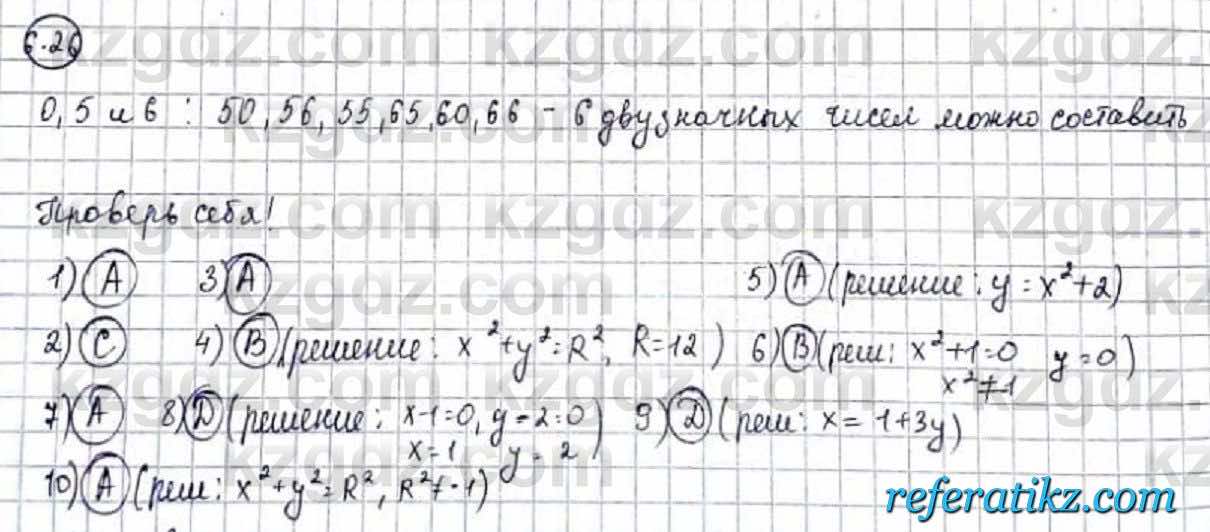 6.26
0, 5 и 6 : 50, 56, 55, 65, 60, 66 - 6 двузначных чисел можно составить
Проверь себя!
1) A 3) A 5) A (решение: y = x²+2)
2) C 4) B (решение: x²+y²=R², R=12) 6) B (реш: x²+1=0 y=0)
x²≠-1
7) A 8) D (решение: x-1=0, y-2=0) 9) D (реш: x = 1+3y)
x=1 y=2
10) A (реш: x²+y²=R², R²≠-1)
referatikz.com